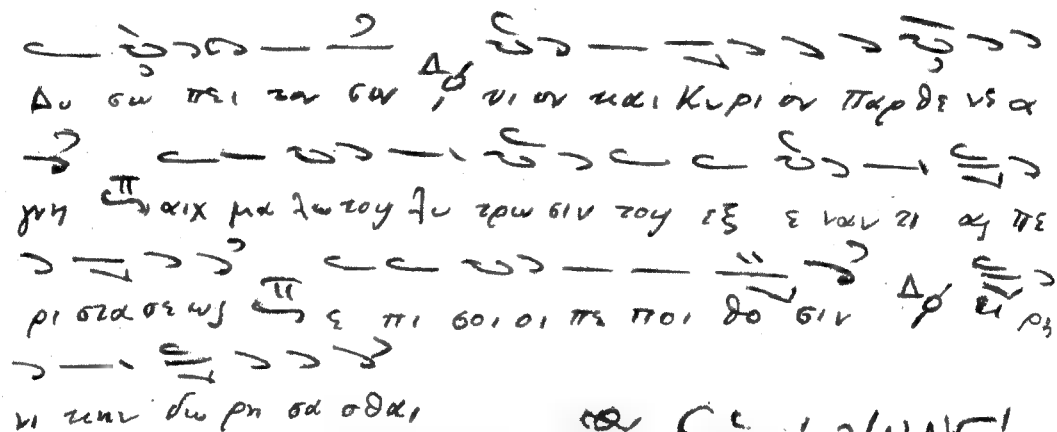 Δυ σω πει τον σον υι ον και Κυρι ον Παρθε νε α
γνη αιχ μα λωτου λυ τρω σιν του εξ ε ναν τι ας πε
ρι στα σε ως ε πι σοι οι πε ποι θο σιν ει ρη
νι κην δω ρη σα σθαι